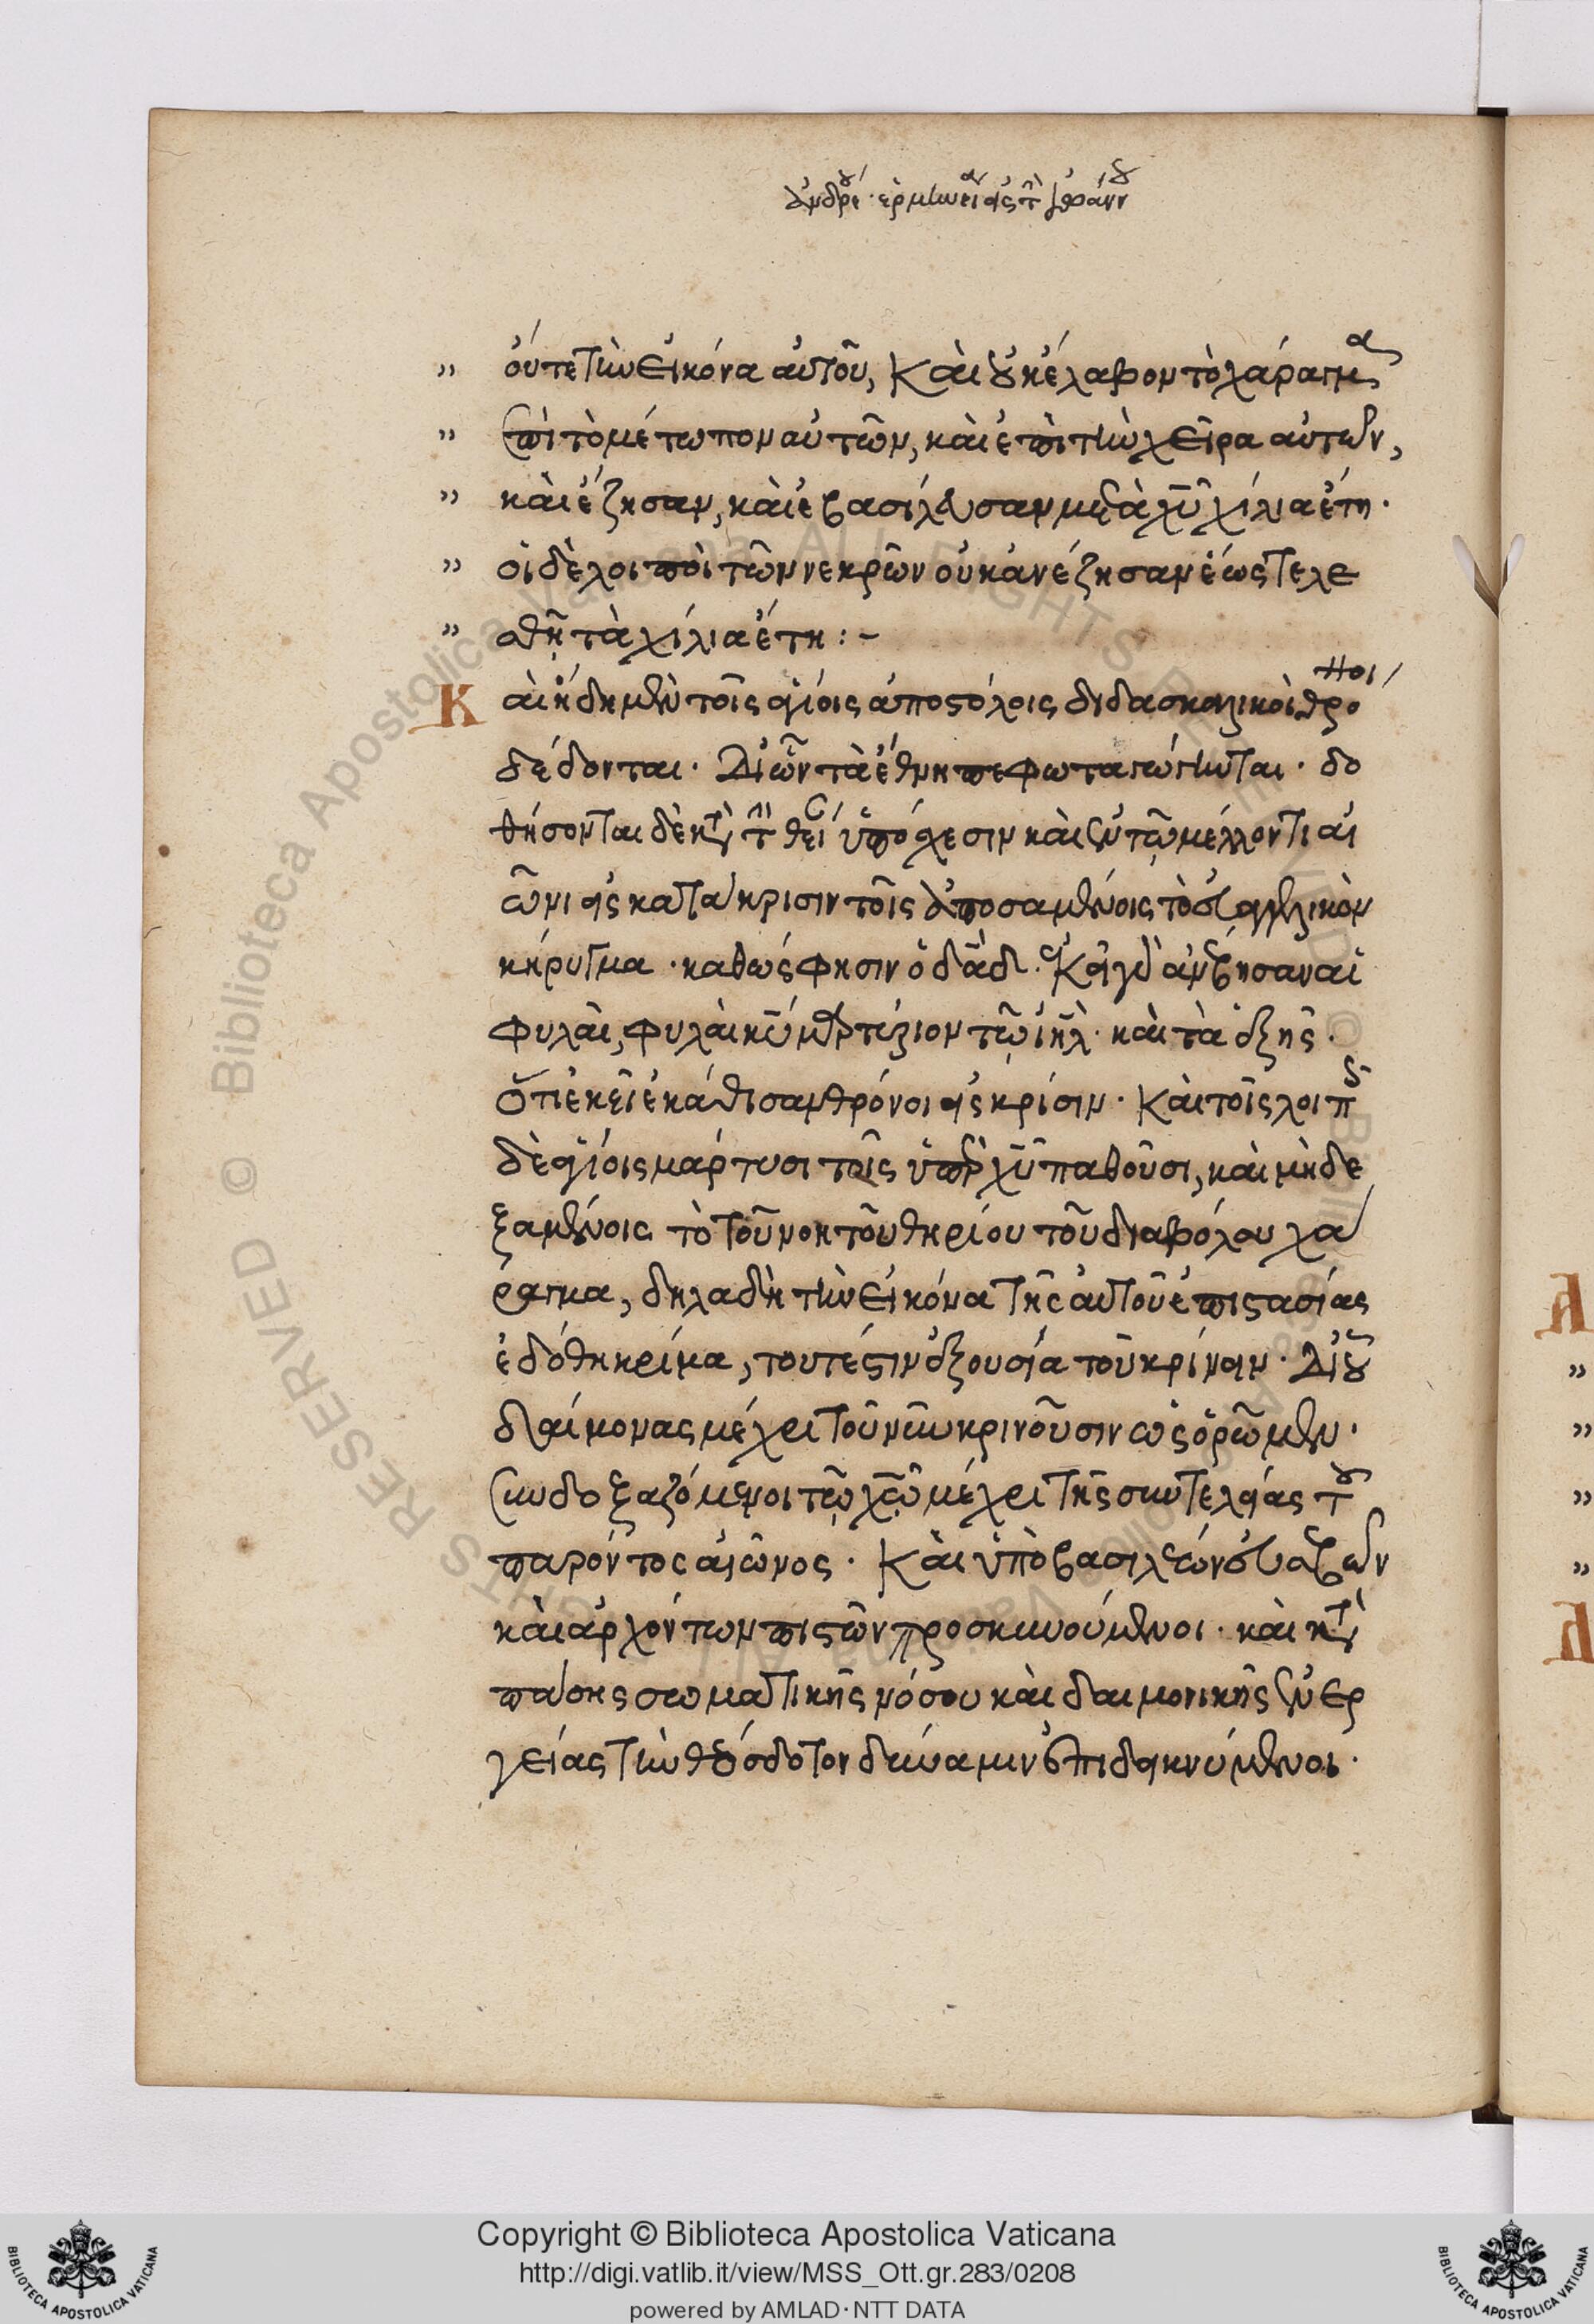 ἀνδρέου ἑρμηνεία εἰς τὴν Ἰωάννου
οὔτε τὴν εἰκόνα αὐτοῦ, Καὶ οὐκ ἔλαβον τὸ χάραγμα
ἐπὶ τὸ μέτωπον αὐτῶν, καὶ ἐπὶ τὴν χεῖρα αὐτῶν,
καὶ ἔζησαν, καὶ ἐβασίλευσαν μετὰ χῦ χίλια ἔτη·
οἱ δὲ λοιποὶ τῶν νεκρῶν οὐκ ἀνέζησαν ἕως τελε
σθῆ τὰ χίλια ἔτη :-
Καὶ ἤδη μὲν τοῖς ἁγίοις ἀποστόλοις διδασκαλικοὶ θρόνοι
δέδονται· Δι' ὧν τὰ ἔθνη πεφωταγώγηνται· δο
θήσονται δὲ κατὰ τὴν θείαν ὑπόσχεσιν καὶ ἐν τῷ μέλλοντι αἰ
ῶνι εἰς κατάκρισιν τοῖς ἀπωσαμένοις τὸ εὐαγγελικὸν
κήρυγμα· καθώς φησιν ὁ δᾱδ· Ἐκεῖ γὰρ ἀνέβησαν αἱ
φυλαὶ, φυλαὶ κῡ μαρτύριον τῷ ἰηλ· καὶ τὰ ἑξῆς·
ὅτι ἐκεῖ ἐκάθισαν θρόνοι εἰς κρίσιν· Καὶ τοῖς λοιποῖς
δὲ ἁγίοις μάρτυσι τοῖς ὑπὲρ χῦ παθοῦσι, καὶ μὴ δε
ξαμένοις τὸ τοῦ νοητοῦ θηρίου τοῦ διαβόλου χά
ραγμα, δηλαδὴ τὴν εἰκόνα τῆς αὐτοῦ ἀποστασίας
ἐδόθη κρίμα, τουτέστιν ἐξουσία τοῦ κρίνειν· Δι' οὗ
δαίμονας μέχρι τοῦ νῦν κρινοῦσιν ὡς ὁρῶμεν·
συνδοξαζόμενοι τῷ χῷ μέχρι τῆς συντελείας τοῦ
παρόντος αἰῶνος· Καὶ ὑπὸ βασιλέων εὐσεβῶν
καὶ ἀρχόντων πιστῶν προσκυνούμενοι· καὶ κατὰ
πάσης σωματικῆς νόσου καὶ δαιμονικῆς ἐνερ
γείας τὴν θεόσδοτον δύναμιν ἐπιδεικνύμενοι·
Copyright © Biblioteca Apostolica Vaticana
http://digi.vatlib.it/view/MSS_Ott.gr.283/0208
powered by AMLAD·NTT DATA